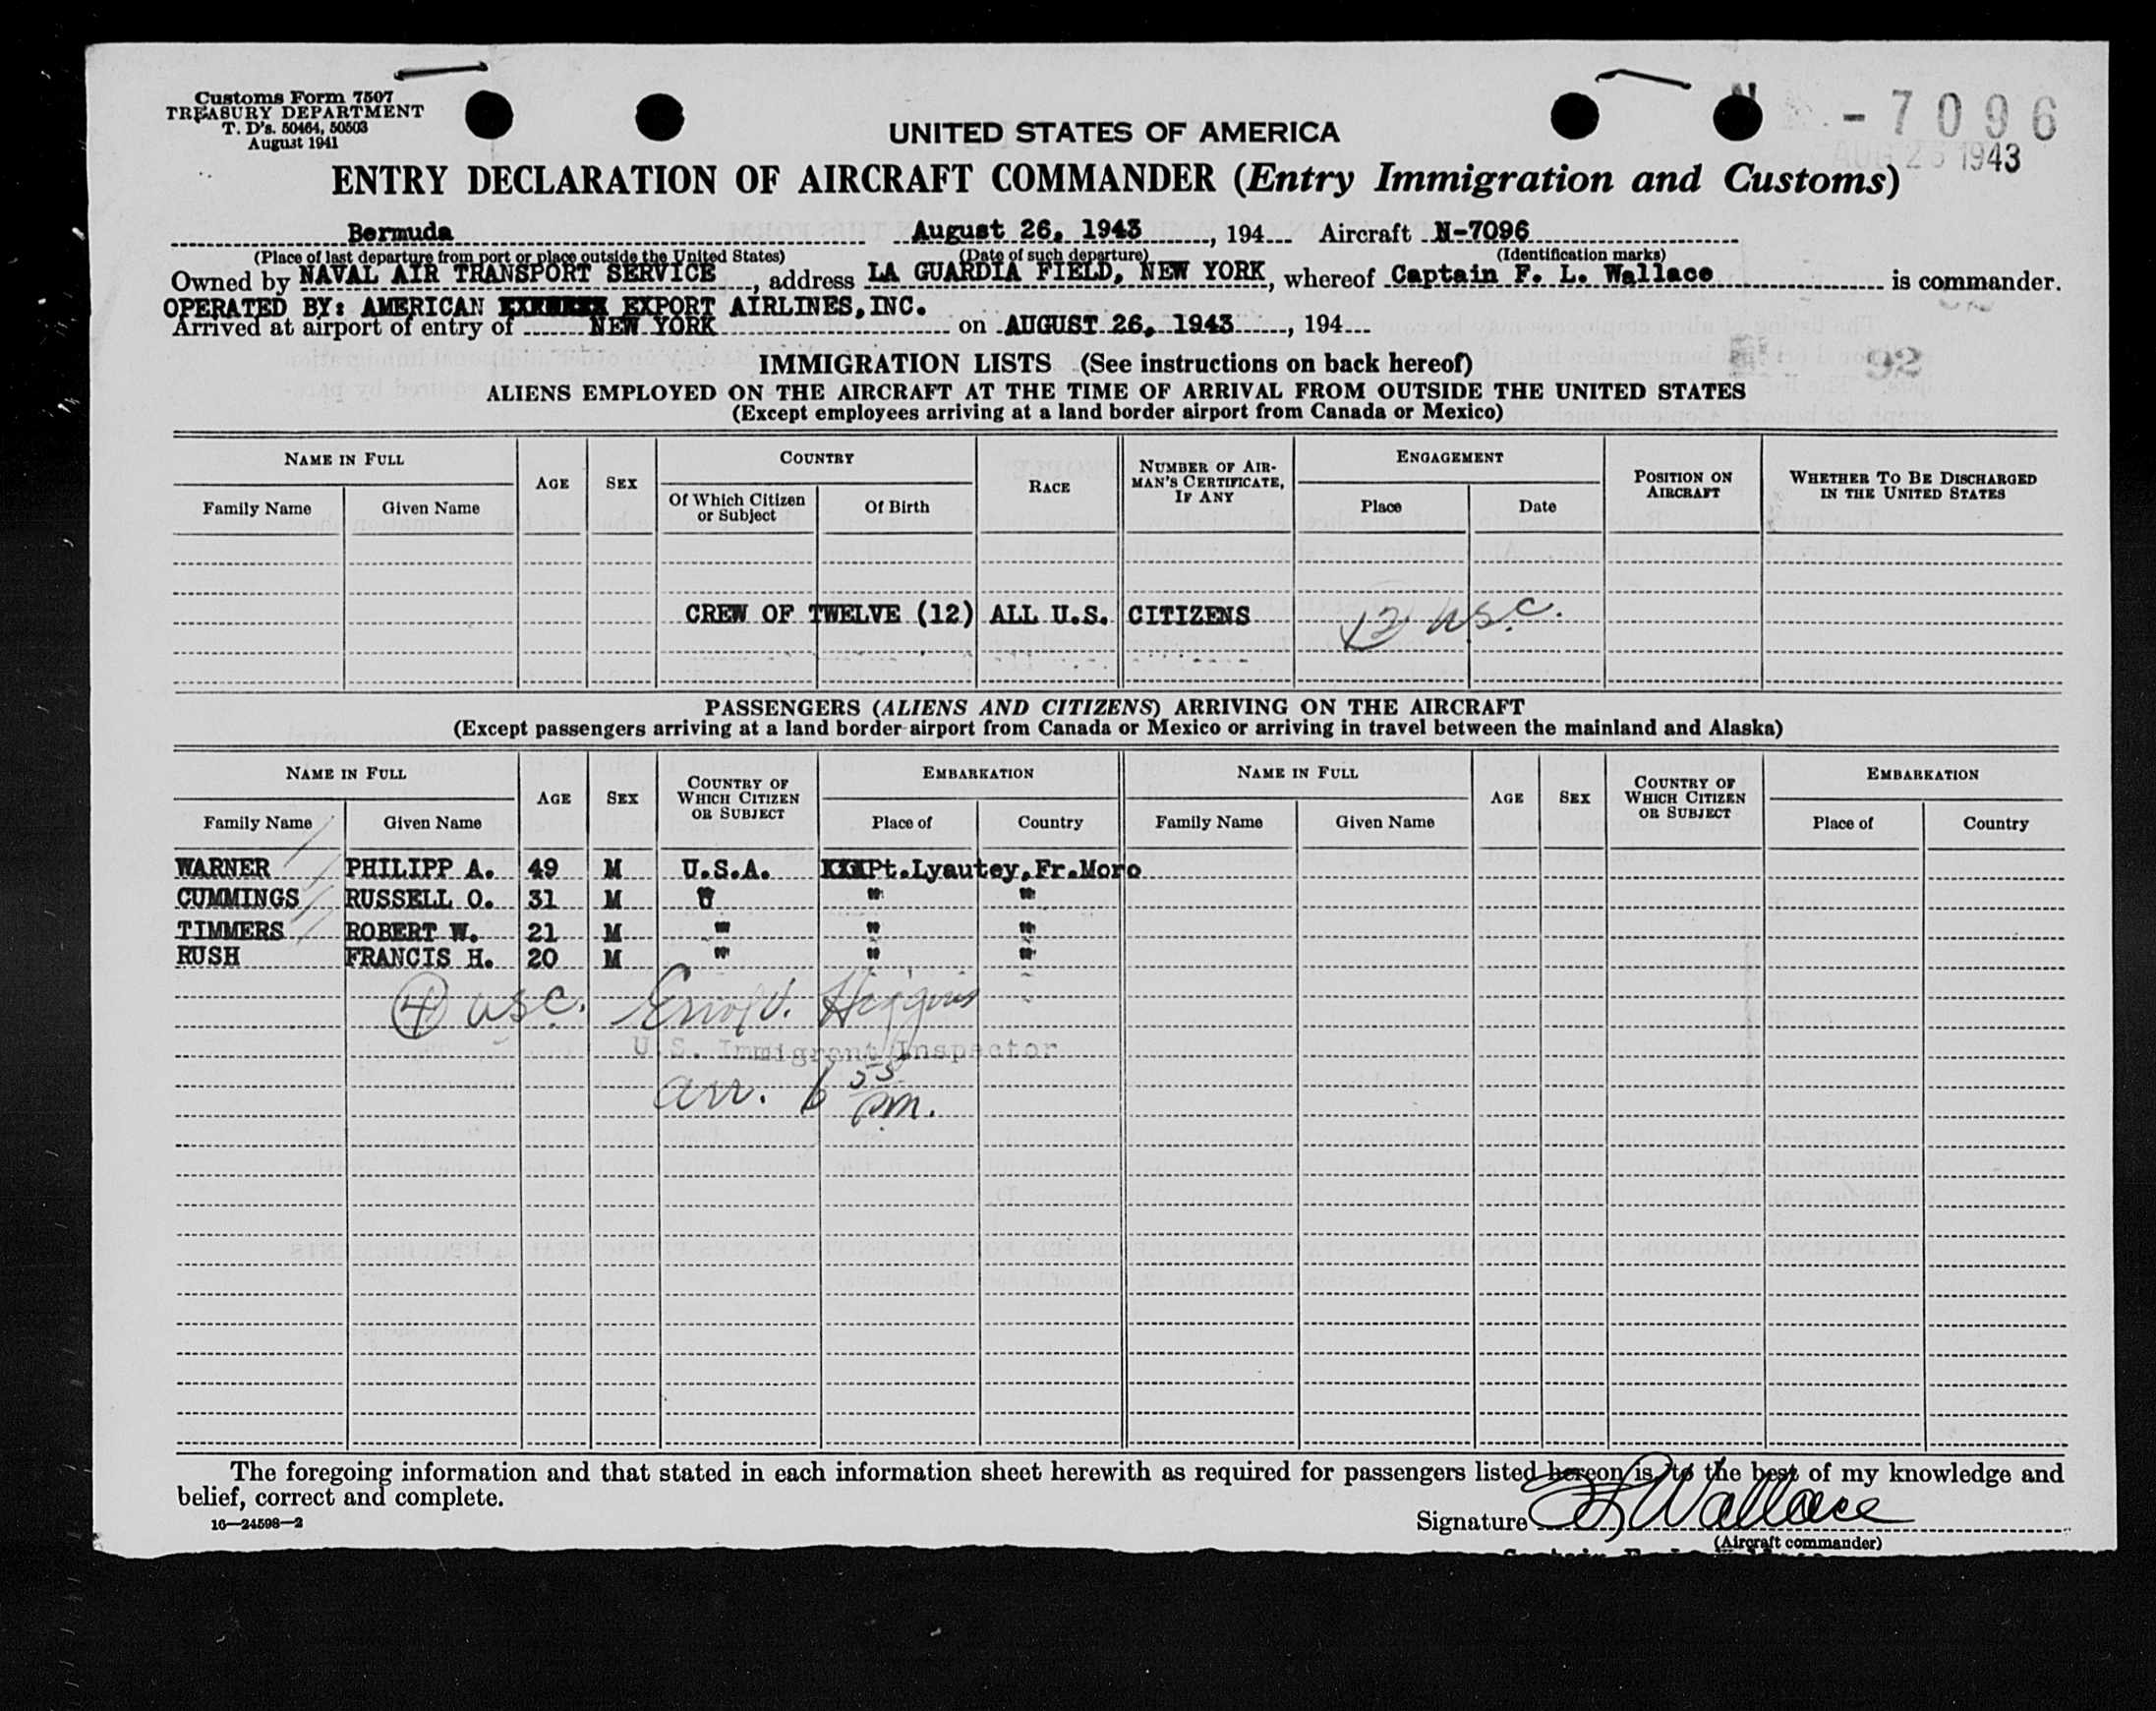 Customs Form 7507
TREASURY DEPARTMENT
T. D's. 50464, 50503
August 1941
- 7096
AUG 26 1943
UNITED STATES OF AMERICA
ENTRY DECLARATION OF AIRCRAFT COMMANDER (Entry Immigration and Customs)
Bermuda August 26, 1943, 194 Aircraft N-7096
(Place of last departure from port or place outside the United States) (Date of such departure) (Identification marks)
Owned by NAVAL AIR TRANSPORT SERVICE, address LA GUARDIA FIELD, NEW YORK, whereof Captain F. L. Wallace is commander.
OPERATED BY: AMERICAN EXPORT AIRLINES, INC.
Arrived at airport of entry of NEW YORK on AUGUST 26, 1943, 194
IMMIGRATION LISTS (See instructions on back hereof)
ALIENS EMPLOYED ON THE AIRCRAFT AT THE TIME OF ARRIVAL FROM OUTSIDE THE UNITED STATES
(Except employees arriving at a land border airport from Canada or Mexico)
NAME IN FULL AGE SEX COUNTRY RACE NUMBER OF AIRMAN'S CERTIFICATE, IF ANY ENGAGEMENT POSITION ON AIRCRAFT WHETHER TO BE DISCHARGED IN THE UNITED STATES
Family Name Given Name Of Which Citizen or Subject Of Birth Place Date
CREW OF TWELVE (12) ALL U.S. CITIZENS 12 usc.
PASSENGERS (ALIENS AND CITIZENS) ARRIVING ON THE AIRCRAFT
(Except passengers arriving at a land border airport from Canada or Mexico or arriving in travel between the mainland and Alaska)
NAME IN FULL AGE SEX COUNTRY OF WHICH CITIZEN OR SUBJECT EMBARKATION NAME IN FULL AGE SEX COUNTRY OF WHICH CITIZEN OR SUBJECT EMBARKATION
Family Name Given Name Place of Country Family Name Given Name Place of Country
WARNER PHILIPP A. 49 M U.S.A. XXXPt.Lyautey,Fr.Moro
CUMMINGS RUSSELL O. 31 M " " "
TIMMERS ROBERT W. 21 M " " "
RUSH FRANCIS H. 20 M " " "
4 usc. Higgins
U.S. Immigrant Inspector
arr. 6 55 pm.
The foregoing information and that stated in each information sheet herewith as required for passengers listed hereon is, to the best of my knowledge and
belief, correct and complete.
16—24598—2
Signature F L Wallace
(Aircraft commander)